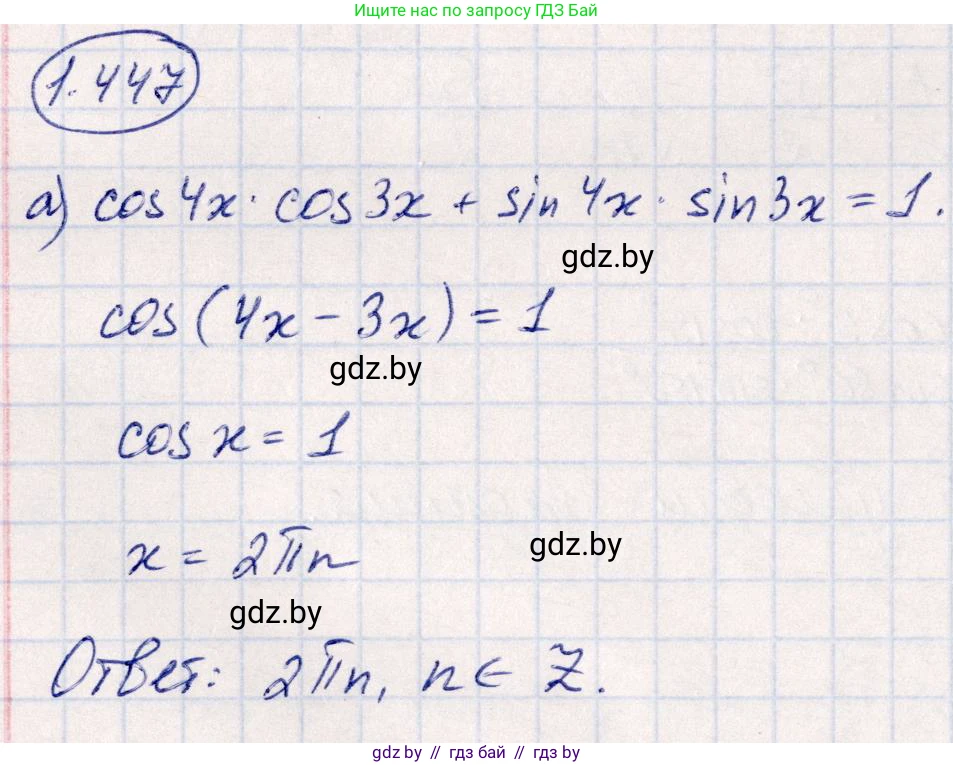 Ищите нас по запросу ГДЗ Бай
1.447
а) cos4x · cos3x + sin4x · sin3x = 1.
gdz.by
cos(4x - 3x) = 1
gdz.by
cos x = 1
x = 2πn
gdz.by
gdz.by
Ответ: 2πn, n ∈ Z.
gdz by // гдз бай // гдз by